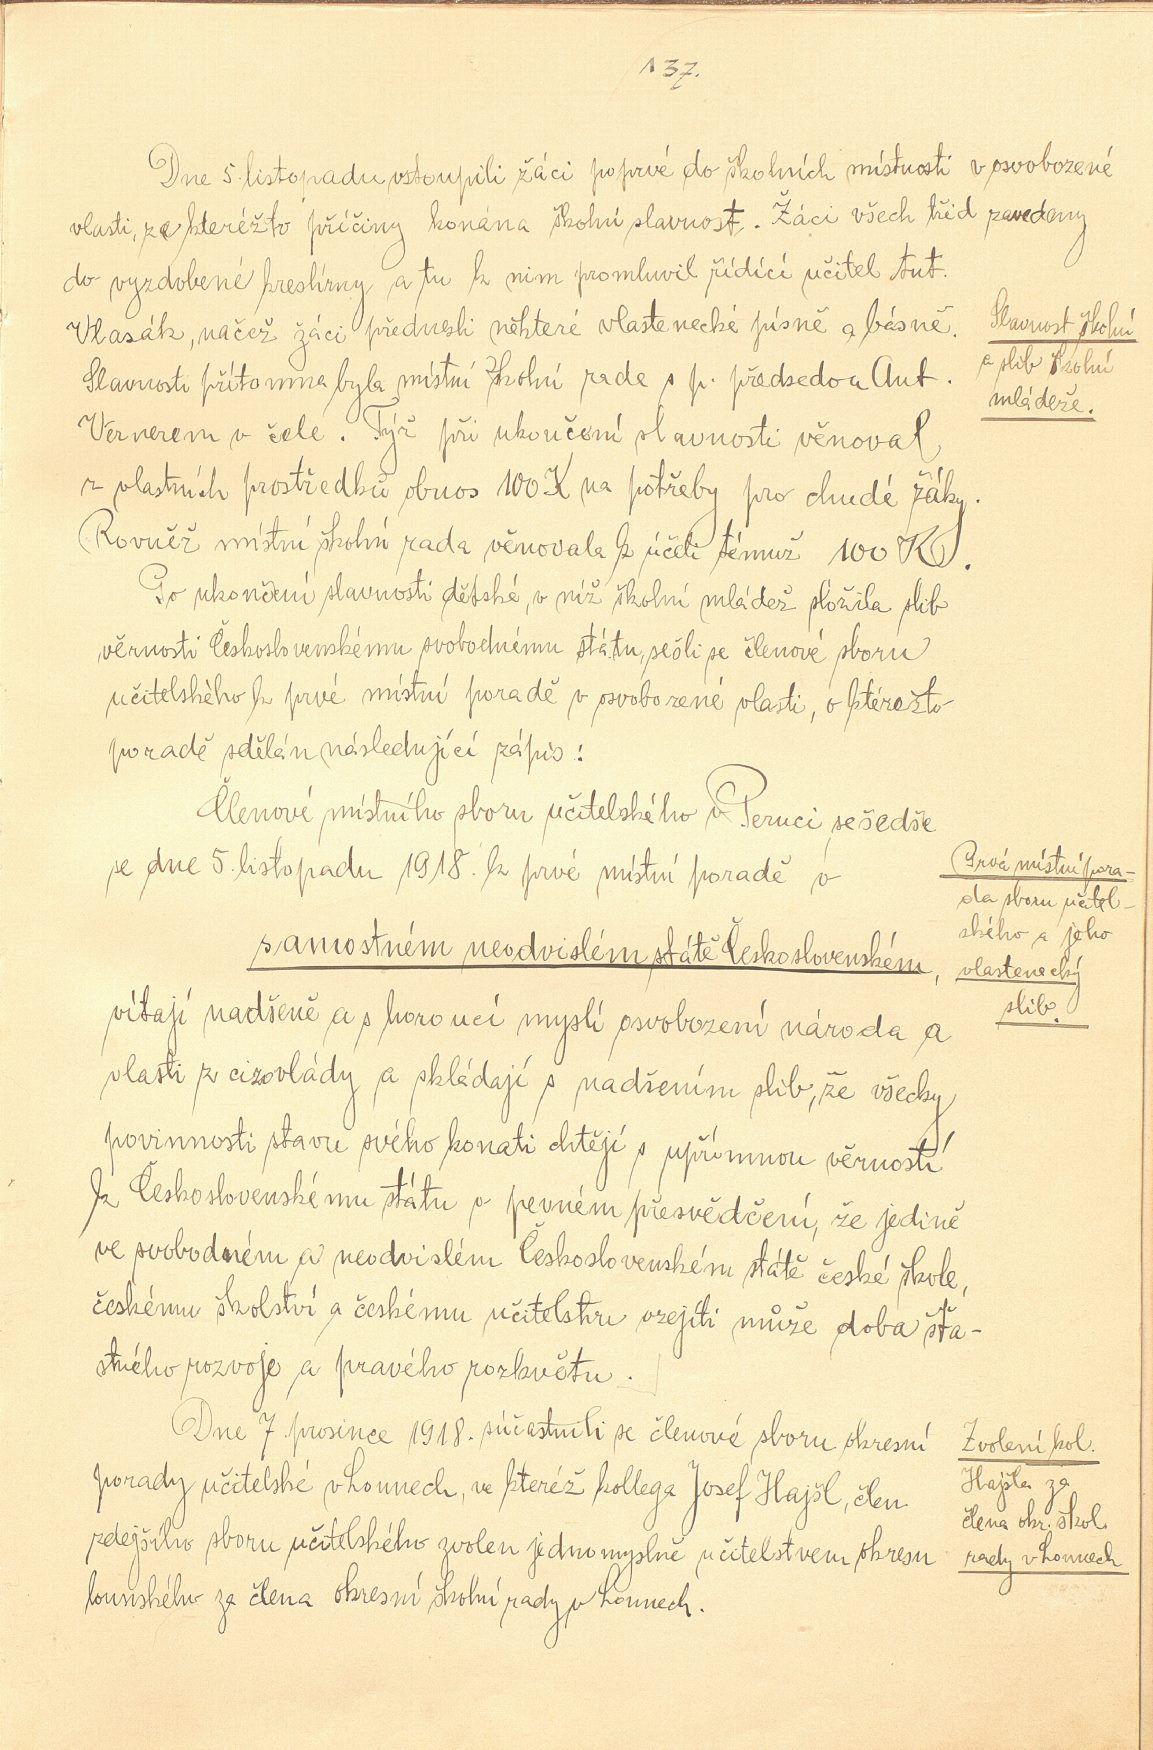 137.
Dne 5. listopadu vstoupili žáci poprvé do školních místností v osvobozené
vlasti, za kteréžto příčiny konána školní slavnost. Žáci všech tříd zavedeny
do vyzdobené kreslírny a tu k nim promluvil řídící učitel Ant.
Vlasák, načež žáci přednesli některé vlastenecké písně a básně.
Slavnosti přítomna byla místní školní rada s p. předsedou Ant.
Vernerem v čele. Týž při ukončení slavnosti věnoval
z vlastních prostředků obnos 100 K na potřeby pro chudé žáky.
Rovněž místní školní rada věnovala k účeli témuž 100 K.
Po ukončení slavnosti dětské, v níž školní mládež složila slib
věrnosti Československému svobodnému státu, sešli se členové sboru
učitelského k prvé místní poradě v osvobozené vlasti, o kterežto
poradě sdělán následující zápis:
Členové místního sboru učitelského v Peruci sešedše
se dne 5. listopadu 1918. k prvé místní poradě v
samostném neodvislém státě Československém,
vítají nadšeně a s horoucí myslí osvobození národa a
vlasti z cizovlády a skládají s nadšením slib, že všecky
povinnosti stavu svého konati chtějí s upřímnou věrností
k Československému státu v pevném přesvědčení, že jedině
ve svobodném a neodvislém Československém státě české škole,
českému školství a českému učitelstvu vzejíti může doba šťa-
stného rozvoje a pravého rozkvětu.
Dne 7. prosince 1918. súčastnili se členové sboru okresní
porady učitelské v Lounech, ve kteréž kollega Josef Hajšl, člen
zdejšího sboru učitelského zvolen jednomyslně učitelstvem okresu
lounského za člena okresní školní rady v Lounech.
Slavnost školní
a slib školní
mládeže.
Prvá místní pora-
da sboru učitel-
ského a jeho
vlastenecký
slib.
Zvolení kol.
Hajšla za
člena okr. škol.
rady v Lounech